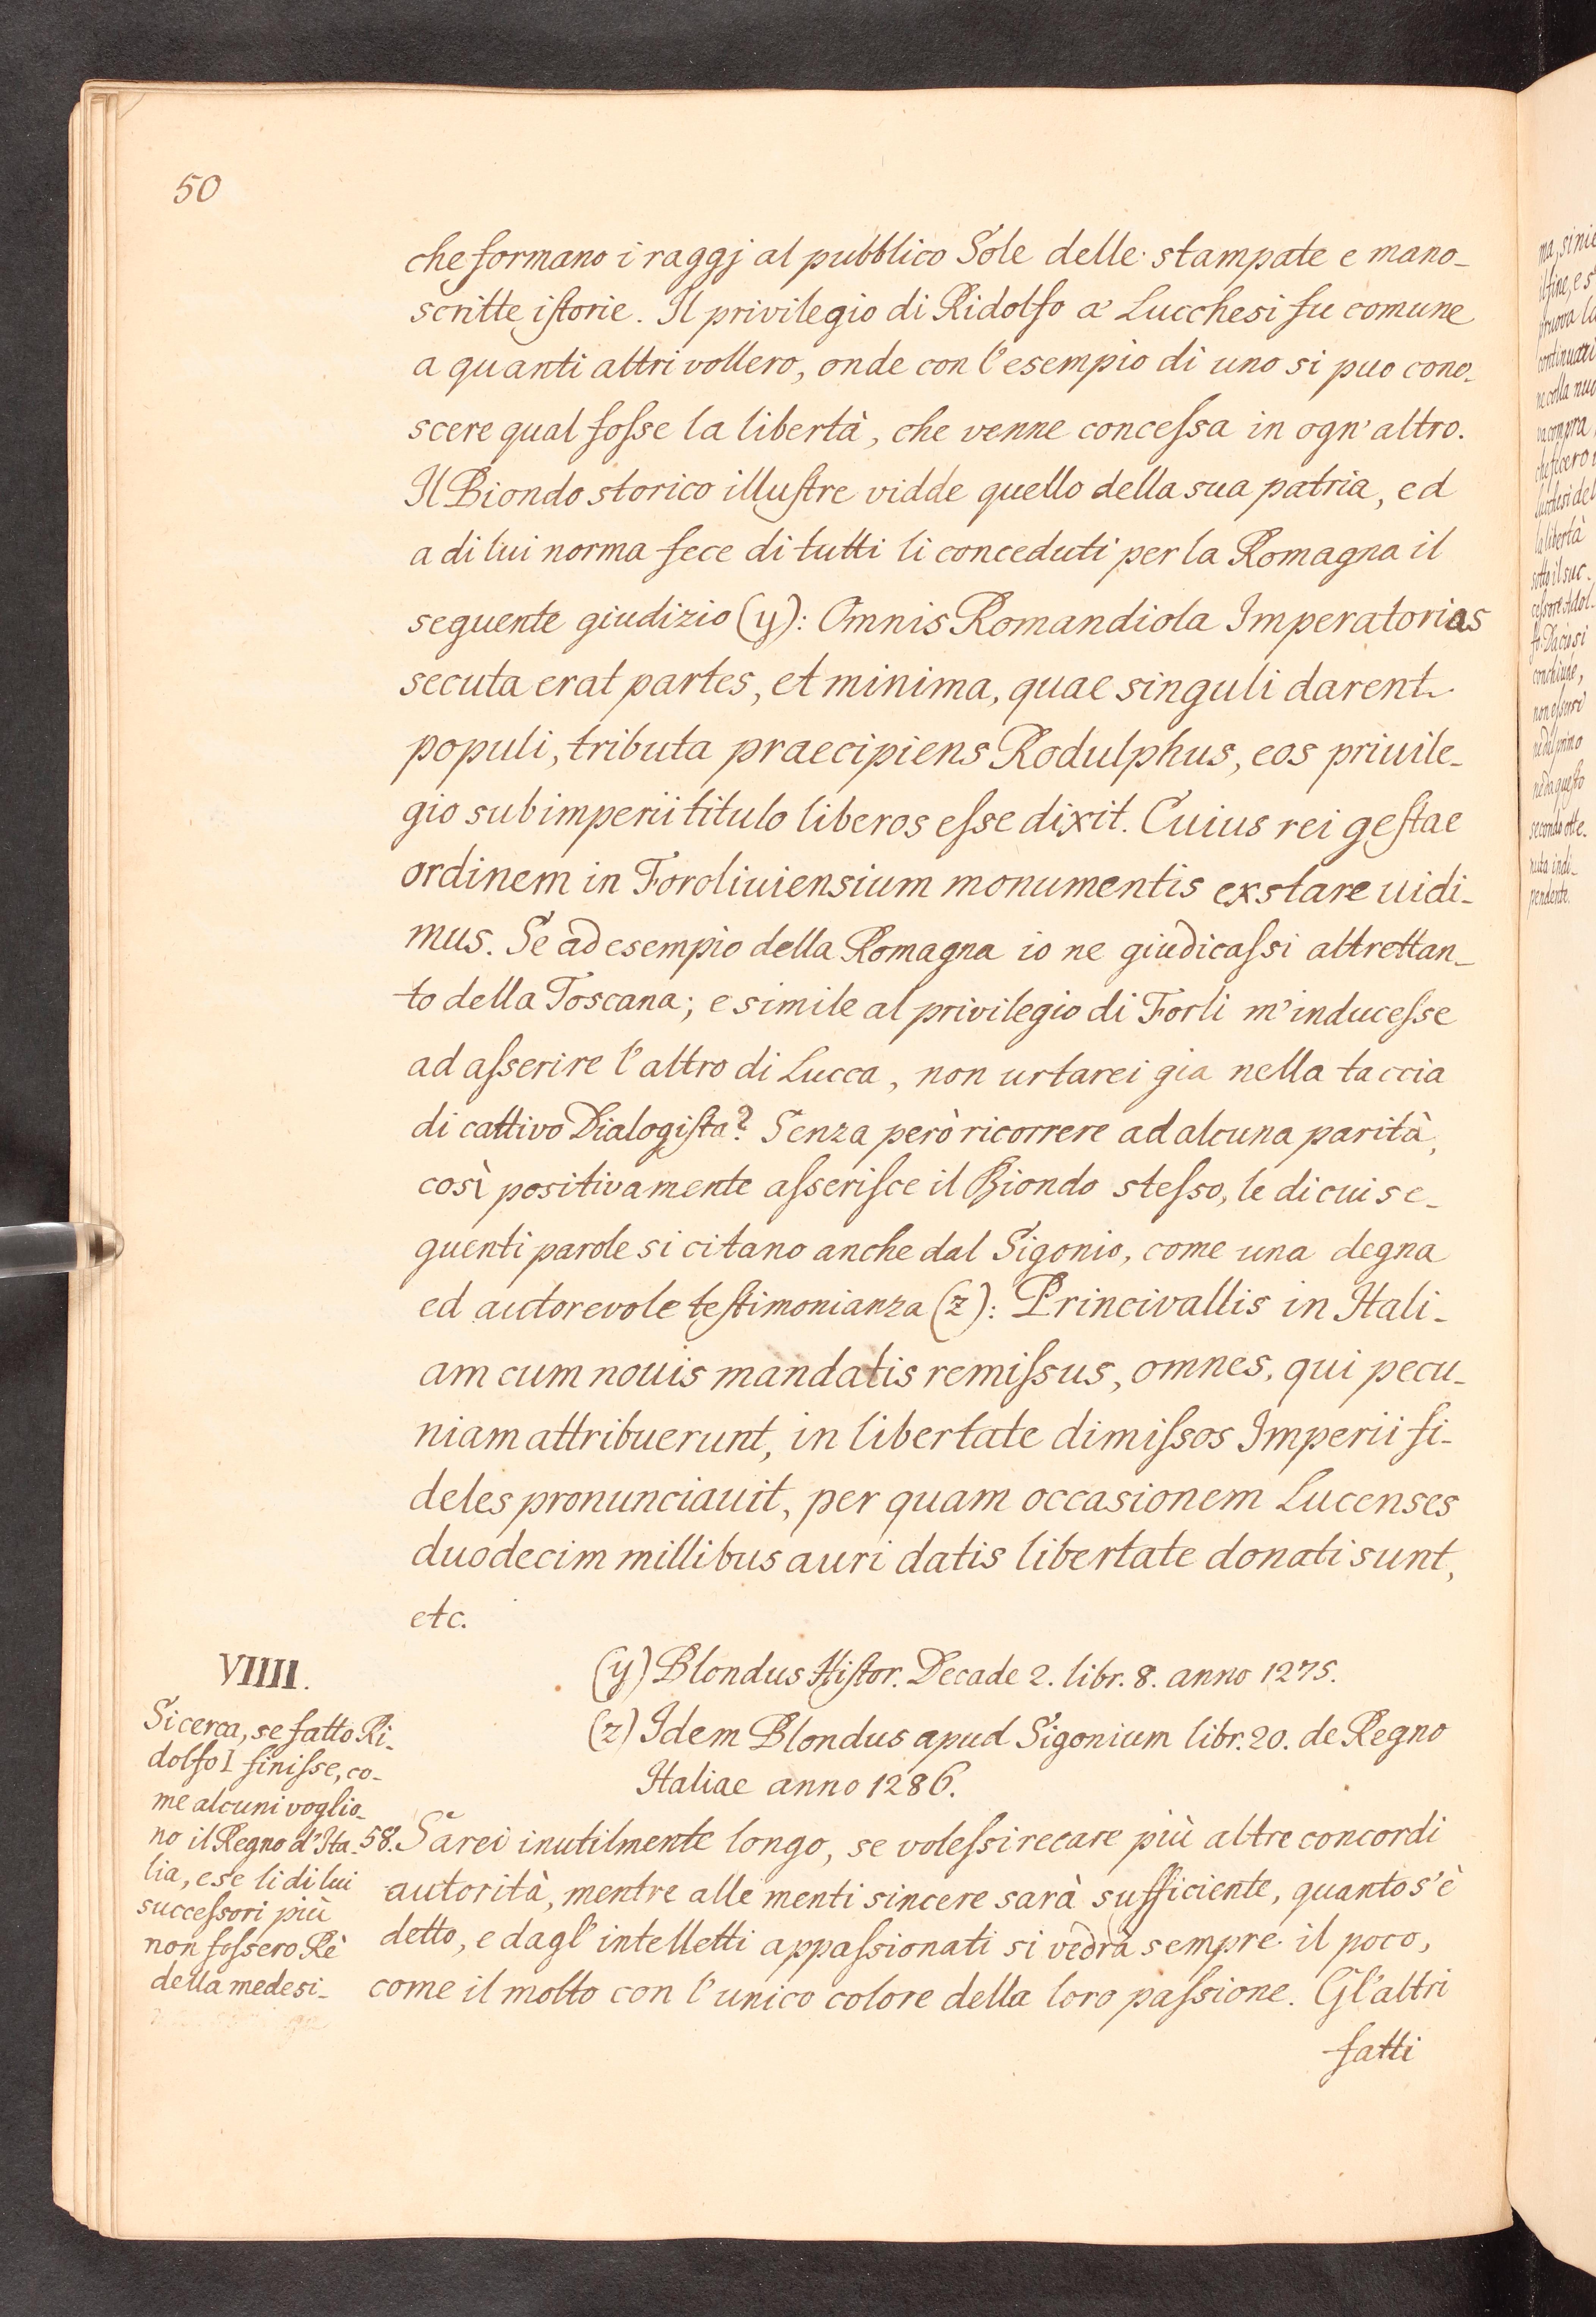 50
che formano i raggj al pubblico Sole delle stampate e mano-
scritte istorie. Il privilegio di Ridolfo a' Lucchesi fu comune
a quanti altri vollero, onde con l'esempio di uno si puo cono-
scere qual fosse la libertà, che venne concessa in ogn'altro.
Il Biondo storico illustre vidde quello della sua patria, ed
a di lui norma fece di tutti li conceduti per la Romagna il
seguente giudizio (y): Omnis Romandiola Imperatorias
secuta erat partes, et minima, quae singuli darent
populi, tributa praecipiens Rodulphus, eos priuile-
gio sub imperii titulo liberos esse dixit. Cuius rei gestae
ordinem in Foroliuiensium monumentis exstare uidi-
mus. Se ad esempio della Romagna io ne giudicassi altrettan-
to della Toscana; e simile al privilegio di Forlì m'inducesse
ad asserire l'altro di Lucca, non urtarei gia nella taccia
di cattivo Dialogista? Senza però ricorrere ad alcuna parità,
così positivamente asserisce il Biondo stesso, le di cui se-
guenti parole si citano anche dal Sigonio, come una degna
ed autorevole testimonianza (z): Princivallis in Itali-
am cum nouis mandatis remissus, omnes, qui pecu-
niam attribuerunt, in libertate dimissos Imperii fi-
deles pronunciauit, per quam occasionem Lucenses
duodecim millibus auri datis libertate donati sunt,
etc.
(y) Blondus Histor. Decade 2. libr. 8. anno 1275.
(z) Idem Blondus apud Sigonium libr. 20. de Regno
Italiae anno 1286.
VIIII.
Si cerca, se fatto Ri-
dolfo I finisse, co-
me alcuni voglio-
no il Regno d'Ita-
lia, e se li di lui
successori più
non fossero Rè
della medesi-
58. Sarei inutilmente longo, se volessi recare più altre concordi
autorità, mentre alle menti sincere sarà sufficiente, quanto s'è
detto, e dagl'intelletti appassionati si vedrà sempre il poco,
come il molto con l'unico colore della loro passione. Gl'altri
fatti
ma, si nie
il fine, e s
pruova la
continuati
ne colla nuo
va compra
che fecero i
Lucchesi del
la libertà
sotto il suc-
cessore Adol-
fo. Da cio si
conchiude,
non essersi
nè dal primo
nè da questo
secondo otte-
nuta indi-
pendente.